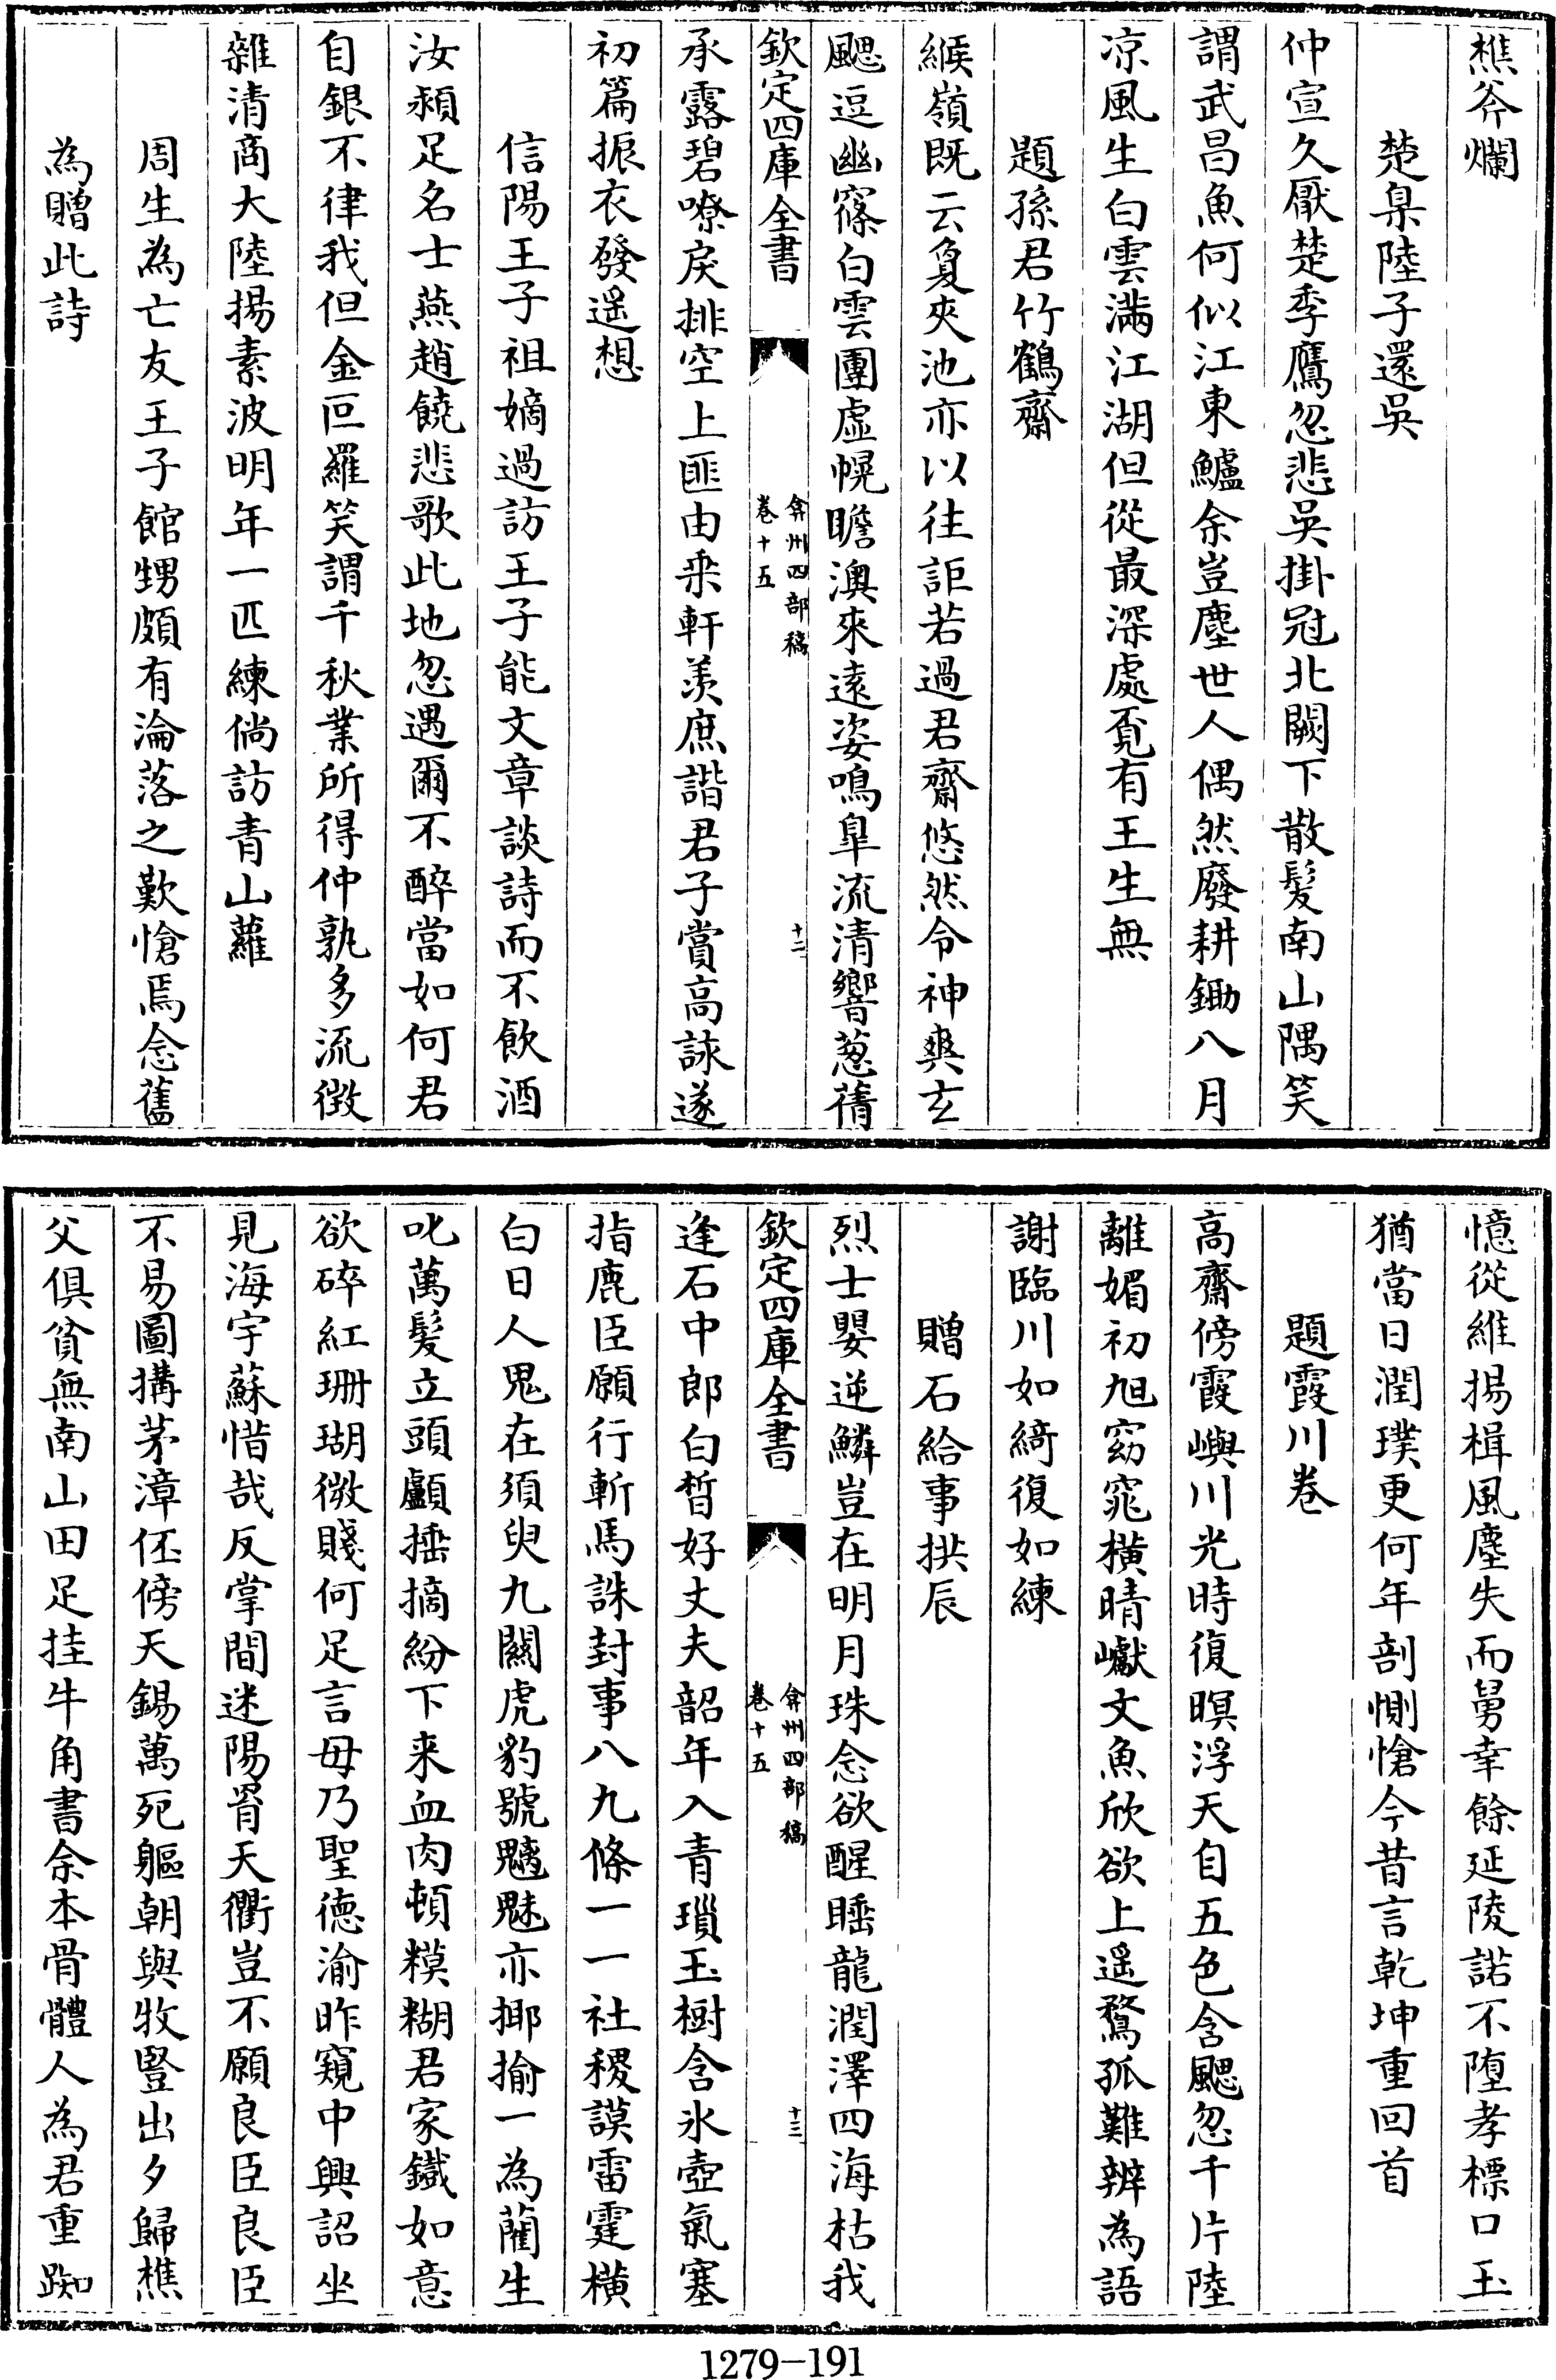 樵斧爛
楚臬陸子還吳
仲宣久厭楚季鷹忽悲吳掛冠北闕下散髮南山隅笑
謂武昌魚何似江東鱸余豈塵世人偶然廢耕鋤八月
凉風生白雲滿江湖但從最深處覔有王生無
題孫君竹鶴齋
緱嶺既云夐夾池亦以往詎若過君齋悠然令神爽玄
颸逗幽篠白雲團虛幌瞻澳來遠姿鳴臯流清響葱蒨
欽定四庫全書
弇州四部稿
卷十五
十二
承露碧嘹戾排空上匪由乘軒羡庶諧君子賞高詠遂
初篇振衣發遥想
信陽王子祖嫡過訪王子能文章談詩而不飲酒
汝潁足名士燕趙饒悲歌此地忽遇爾不醉當如何君
自銀不律我但金叵羅笑謂千秋業所得仲孰多流徴
雜清商大陸揚素波明年一匹練倘訪青山蘿
周生為亡友王子館甥頗有淪落之歎愴焉念舊
為贈此詩
憶從維揚楫風塵失而舅幸餘延陵諾不墮孝標口玉
猶當日潤璞更何年剖惻愴今昔言乾坤重回首
題霞川卷
高齋傍霞嶼川光時復暝浮天自五色含颸忽千片陸
離媚初旭窈窕横晴巘文魚欣欲上遥鶩孤難辨為語
謝臨川如綺復如練
贈石給事拱辰
烈士嬰逆鱗豈在明月珠念欲醒睡龍潤澤四海枯我
欽定四庫全書
弇州四部稿
卷十五
十三
逢石中郎白晳好丈夫韶年入青瑣玉樹含氷壺氣塞
指鹿臣願行斬馬誅封事八九條一一社稷謨雷霆横
白日人鬼在須臾九關虎豹號魑魅亦揶揄一為藺生
叱萬髮立頭顱捶摘紛下来血肉頓糢糊君家鐵如意
欲碎紅珊瑚微賤何足言毋乃聖德渝昨窺中興詔坐
見海宇蘇惜哉反掌間迷陽胥天衢豈不願良臣良臣
不易圖搆茅漳伾傍天錫萬死軀朝與牧豎出夕歸樵
父俱貧無南山田足挂牛角書余本骨體人為君重踟
1279-191